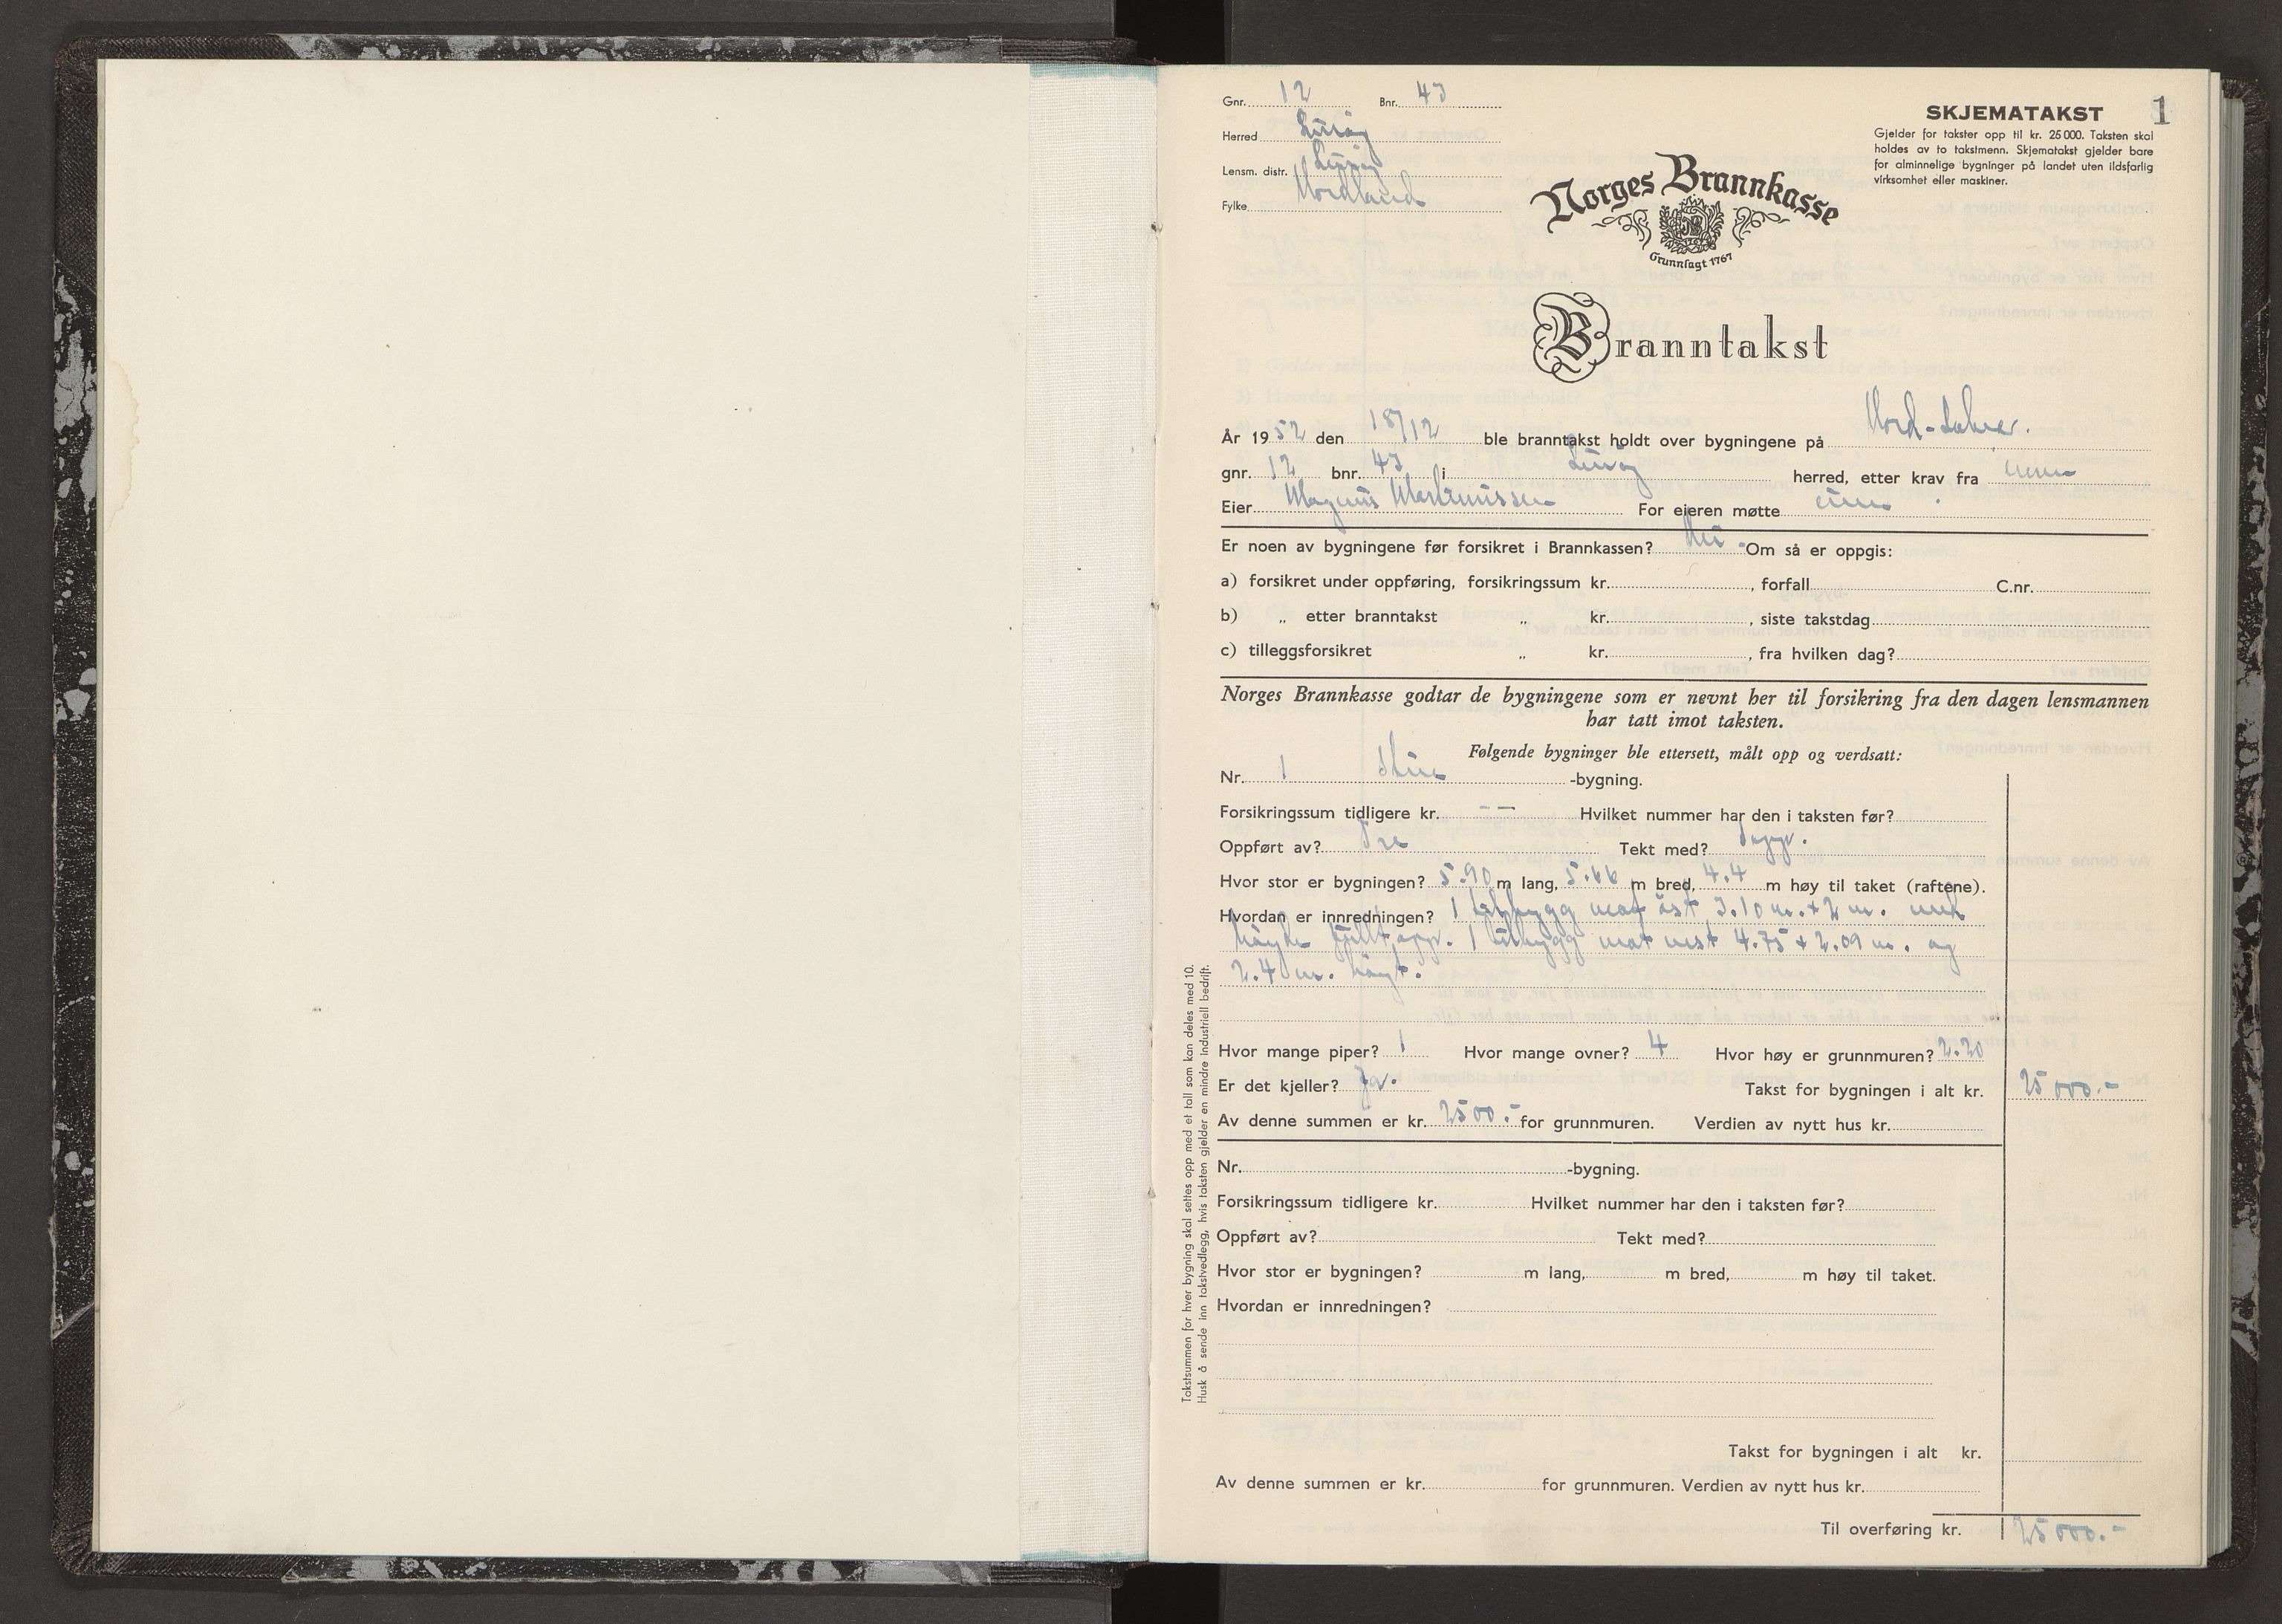 Gnr. 12 Bnr. 43
SKJEMATAKST 1
Herred Lurøy
Gjelder for takster opp til kr. 25 000. Taksten skal
holdes av to takstmenn. Skjematakst gjelder bare
for alminnelige bygninger på landet uten ildsfarlig
virksomhet eller maskiner.
Lensm. distr. Lurøy
Fylke Nordland
Norges Brannkasse
Grunnlagt 1767
Branntakst
År 1952 den 18/12 ble branntakst holdt over bygningene på Nord-Solvær.
gnr. 12 bnr. 43 i Lurøy herred, etter krav fra
Eier Magnus Martinussen For eieren møtte
Er noen av bygningene før forsikret i Brannkassen? Nei - Om så er oppgis:
a) forsikret under oppføring, forsikringssum kr. , forfall C.nr.
b) „ etter branntakst „ kr. , siste takstdag
c) tilleggsforsikret „ kr. , fra hvilken dag?
Norges Brannkasse godtar de bygningene som er nevnt her til forsikring fra den dagen lensmannen
har tatt imot taksten.
Følgende bygninger ble ettersett, målt opp og verdsatt:
Nr. 1 Stue -bygning.
Forsikringssum tidligere kr. -- Hvilket nummer har den i taksten før?
Oppført av? Tre Tekt med? papp.
Hvor stor er bygningen? 5.90 m lang, 5.66 m bred, 4.4 m høy til taket (raftene).
Hvordan er innredningen? 1 tilbygg mot øst 3.10 m. + 2 m. med
høyde . 1 tilbygg mot vest 4.75 + 2.09 m. og
2.40 m. høyt.
Hvor mange piper? 1 Hvor mange ovner? 4 Hvor høy er grunnmuren? 2.20
Er det kjeller? Ja. Takst for bygningen i alt kr. 25 000.-
Av denne summen er kr. 2500.- for grunnmuren. Verdien av nytt hus kr.
Nr. -bygning.
Forsikringssum tidligere kr. Hvilket nummer har den i taksten før?
Oppført av? Tekt med?
Hvor stor er bygningen? m lang, m bred, m høy til taket.
Hvordan er innredningen?
Takst for bygningen i alt kr.
Av denne summen er kr. for grunnmuren. Verdien av nytt hus kr.
Til overføring kr. 25 000.-
Takstsummen for hver bygning skal settes opp med et tall som kan deles med 10.
Husk å sende inn takstvedlegg, hvis taksten gjelder en mindre industriell bedrift.